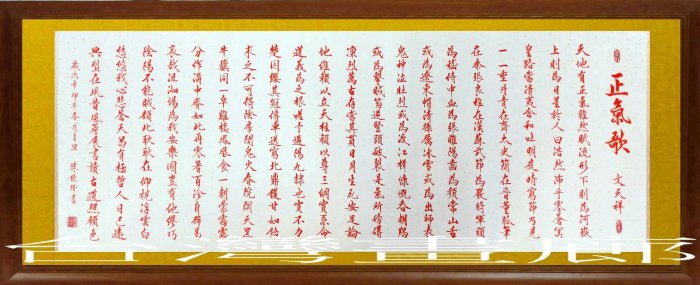 正氣歌
文天祥
天地有正氣雜然賦流形下則為河嶽
上則為日星於人曰浩然沛乎塞蒼冥
皇路當清夷含和吐明庭時窮節乃見
一一垂丹青在齊太史簡在晉董狐筆
在秦張良椎在漢蘇武節為嚴將軍頭
為嵇侍中血為張睢陽齒為顏常山舌
或為遼東帽清操厲冰雪或為出師表
鬼神泣壯烈或為渡江楫慷慨吞胡羯
或為擊賊笏逆豎頭破裂是氣所磅礡
凜烈萬古存當其貫日月生死安足論
地維賴以立天柱賴以尊三綱實系命
道義為之根嗟予遘陽九隸也實不力
楚囚纓其冠傳車送窮北鼎鑊甘如飴
求之不可得陰房闃鬼火春院閟天黑
牛驥同一皁雞棲鳳凰食一朝蒙霧露
分作溝中瘠如此再寒暑百沴自辟易
哀哉沮洳場為我安樂國豈有他繆巧
陰陽不能賊顧此耿耿在仰視浮雲白
悠悠我心悲蒼天曷有極哲人日已遠
典型在夙昔風簷展書讀古道照顏色
歲次辛卯年春月吉旦 朱隆書
台灣書廊